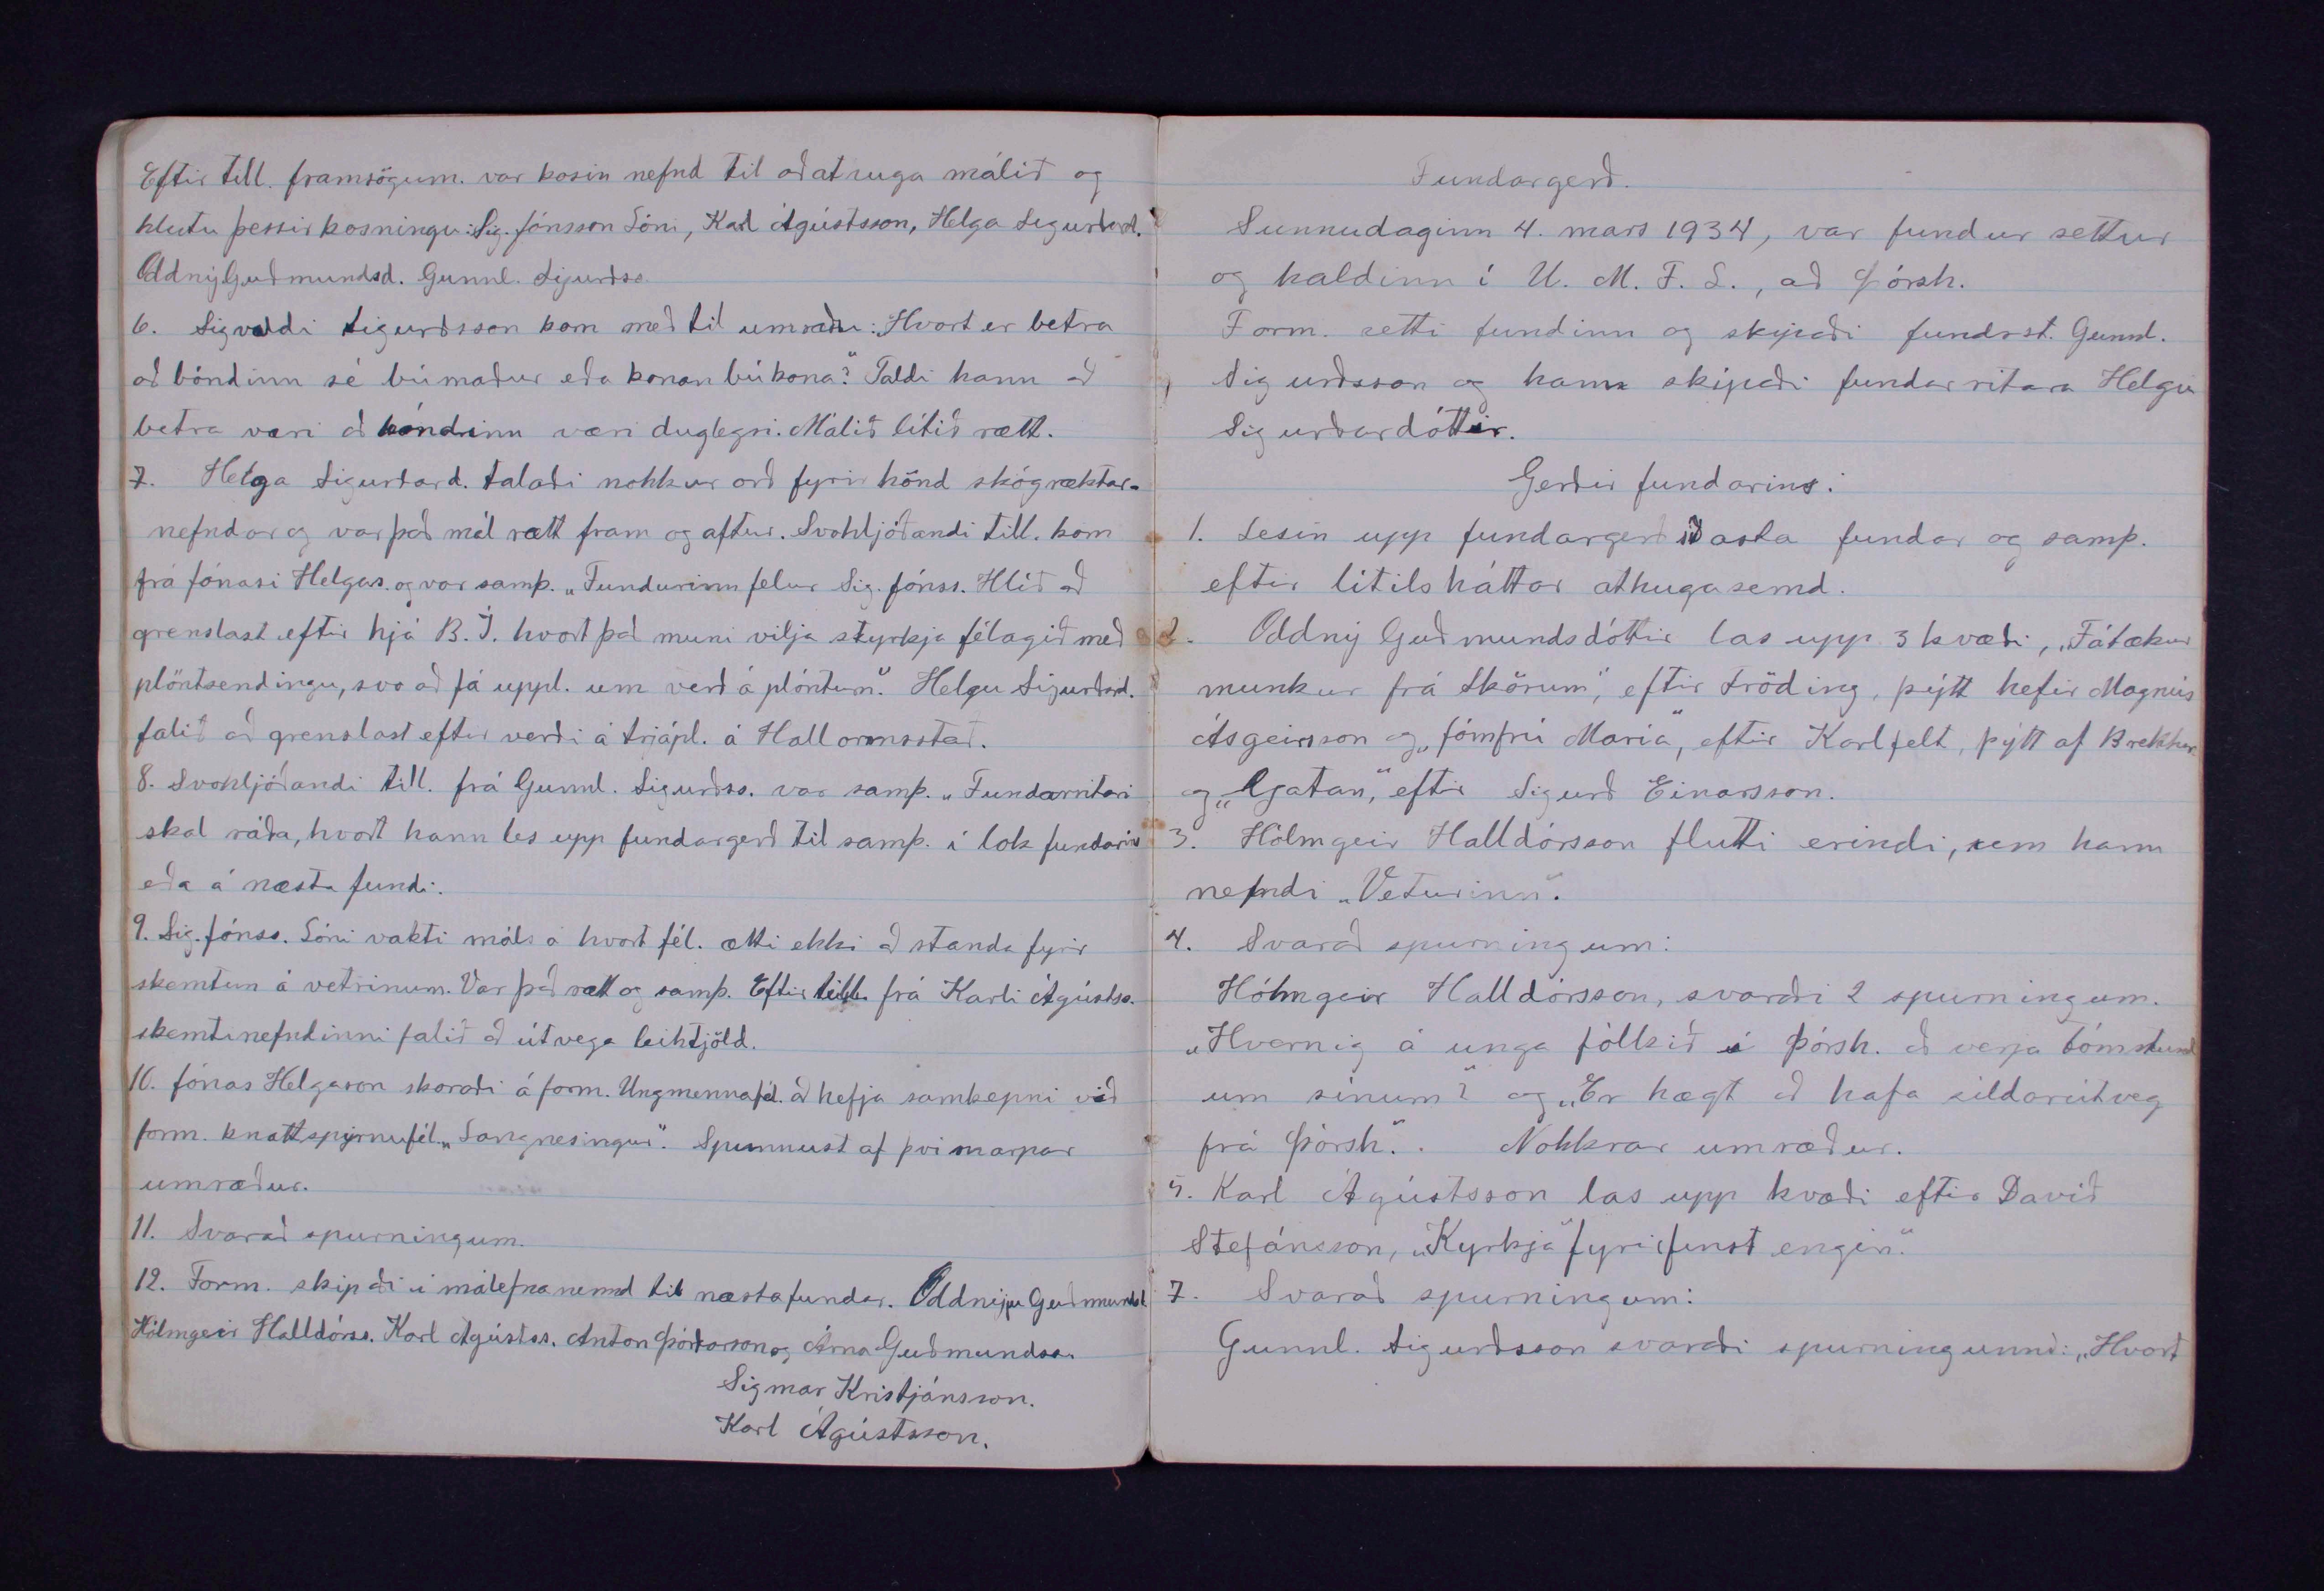 Eftir till. framsögum. var kosin nefnd til að atruga málið og
hlutu þessir kosningu: Sig. Jónsson Lóni, Karl Ágústsson, Helga Sigurðard.
Oddný Guðmundsd. Gunnl. Sigurðss.
6. Sigvaldi Sigurðsson kom með til umræðu: Hvort er betra
að bóndinn sé búmaður eða konan búkona?" Taldi hann að
betra væri að bóndinn væri duglegri. Málið lítið rætt.
7. Helga Sigurðard. talaði nokkur orð fyrir hönd skógræktar-
nefndar og var það mál rætt fram og aftur. Svohljóðandi till. kom
frá Jónasi Helgas. og var samþ. „Fundurinn felur Sig. Jónss. Hlíð að
grenslast eftir hjá B. Í. hvort það muni vilja styrkja félagið með
plöntsendingu, svo að fá uppl. um verð á plöntum." Helgu Sigurðard.
falið að grenslast eftir verði á trjápl. á Hallormsstað.
8. Svohljóðandi till. frá Gunnl. Sigurðss. var samþ. „Fundarritari
skal ráða, hvort hann les upp fundargerð til samþ. í lok fundarins
eða á næsta fundi.
9. Sig. Jónss. Lóni vakti máls á hvort fél. ætti ekki að standa fyrir
skemtun á vetrinum. Var það rætt og samþ. Eftir till. frá Karli Ágústss.
skemtinefndinni falið að útvega leiktjöld.
10. Jónas Helgason skoraði á form. Ungmennafél. að hefja samkepni við
form. knattspyrnufél. „Langnesingur". Spunnust af því margar
umræður.
11. Svarað spurningum.
12. Form. skipaði í málefnanemnd til næsta fundar. Oddnýju Guðmundsd.
Hólmgeir Halldórss. Karl Ágústss. Anton Þórðarson og Árna Guðmundss.
Sigmar Kristjánsson.
Karl Ágústsson.
Fundargerð.
Sunnudaginn 4. mars 1934, var fundur settur
og haldinn í U. M. F. L., að Þórsh.
Form. setti fundinn og skipaði fundrst. Gunnl.
Sigurðsson og hann skipaði fundarritara Helgu
Sigurðardóttir.
Gerðir fundarins:
1. Lesin upp fundargerð síðasta fundar og samþ.
eftir lítilsháttar athugasemd.
2. Oddný Guðmundsdóttir las upp 3 kvæði, „Fátækur
munkur frá Skörum", eftir Fröding, þýtt hefir Magnús
Ásgeirsson og „Jómfrú María", eftir Karlfelt, þýtt af Brekkan
og „Gatan," eftir Sigurð Einarsson.
3. Hólmgeir Halldórsson flutti erindi, sem hann
nefndi „Veturinn".
4. Svarað spurningum:
Hólmgeir Halldórsson, svaraði 2 spurningum.
„Hvernig á unga fólkið á Þórsh. að verja tómstund
um sínum"? og „Er hægt að hafa síldarútveg
frá Þórsh.". Nokkrar umræður.
5. Karl Ágústsson las upp kvæði eftir Davíð
Stefánsson, „Kyrkja fyrirfinst engin."
7. Svarað spurningum:
Gunnl. Sigurðsson svaraði spurningunni: „Hvort